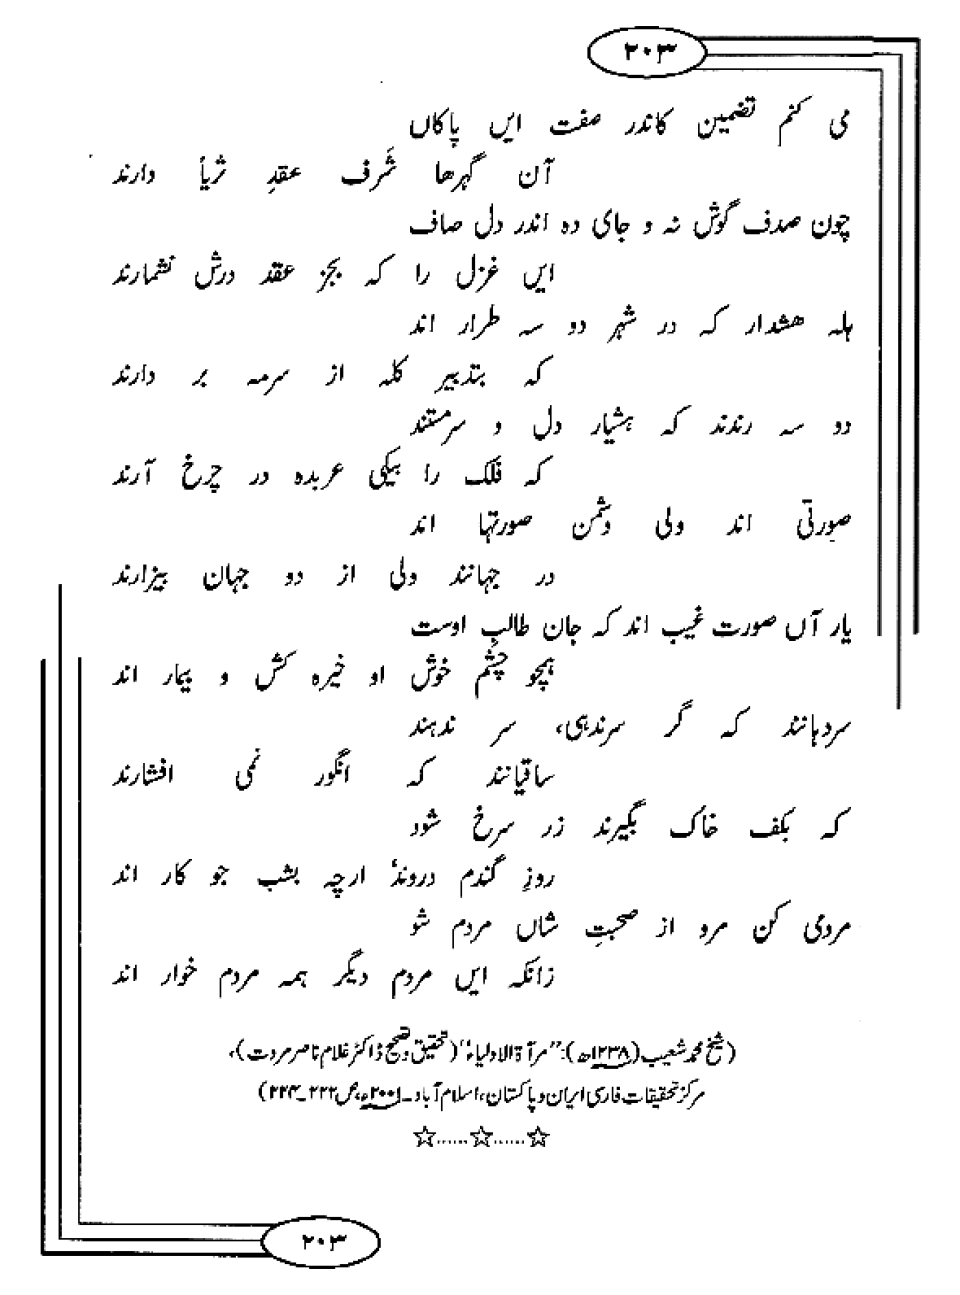 ۲۰۳
می کنم تضمین کاندر صفت ایں پاکاں
آن گہرھا شَرف عقدِ ثریاً دارند
چون صدف گوش نہ و جای دہ اندر دل صاف
ایں غزل را کہ بجز عقد درش نشمارند
ہلہ ھشدار کہ در شہر دو سہ طرار اند
کہ بتدبیر کلہ از سرمہ بر دارند
دو سہ رندند کہ ہشیار دل و سرمستند
کہ فلک را بیکی عربدہ در چرخ آرند
صورتی اند ولی دشمن صورتہا اند
در جہانند ولی از دو جہان بیزارند
یار آں صورت غیب اند کہ جان طالبِ اوست
ہمچو چشم خوش او خیرہ کش و بیمار اند
سردہانند کہ گر سرندہی، سر ندہند
ساقیانند کہ انگور نمی افشارند
کہ بکف خاک بگیرند زر سرخ شود
روزِ گندم دروند ارچہ بشب جو کار اند
مردمی کن مرو از صحبتِ شاں مردم شو
زانکہ ایں مردم دیگر ہمہ مردم خوار اند
(شیخ محمد شعیب (۱۲۳۸ھ): "مرآۃ الاولیاء" (تحقیق و تصحیح ڈاکٹر غلام ناصر مروت)،
مرکز تحقیقات فارسی ایران و پاکستان، اسلام آباد۔ ۲۰۰۱ء، ص ۲۲۲۔۲۲۴)
☆......☆......☆
۲۰۳